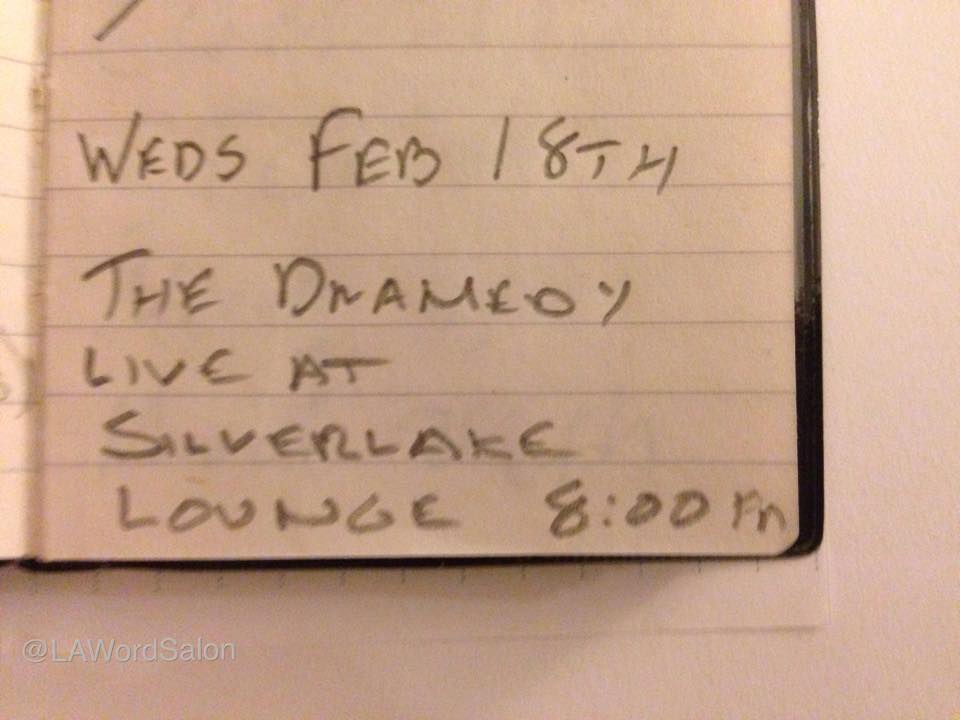 WEDS FEB 18TH
THE DRAMEDY
LIVE AT
SILVERLAKE
LOUNGE 8:00 PM
@LAWordSalon